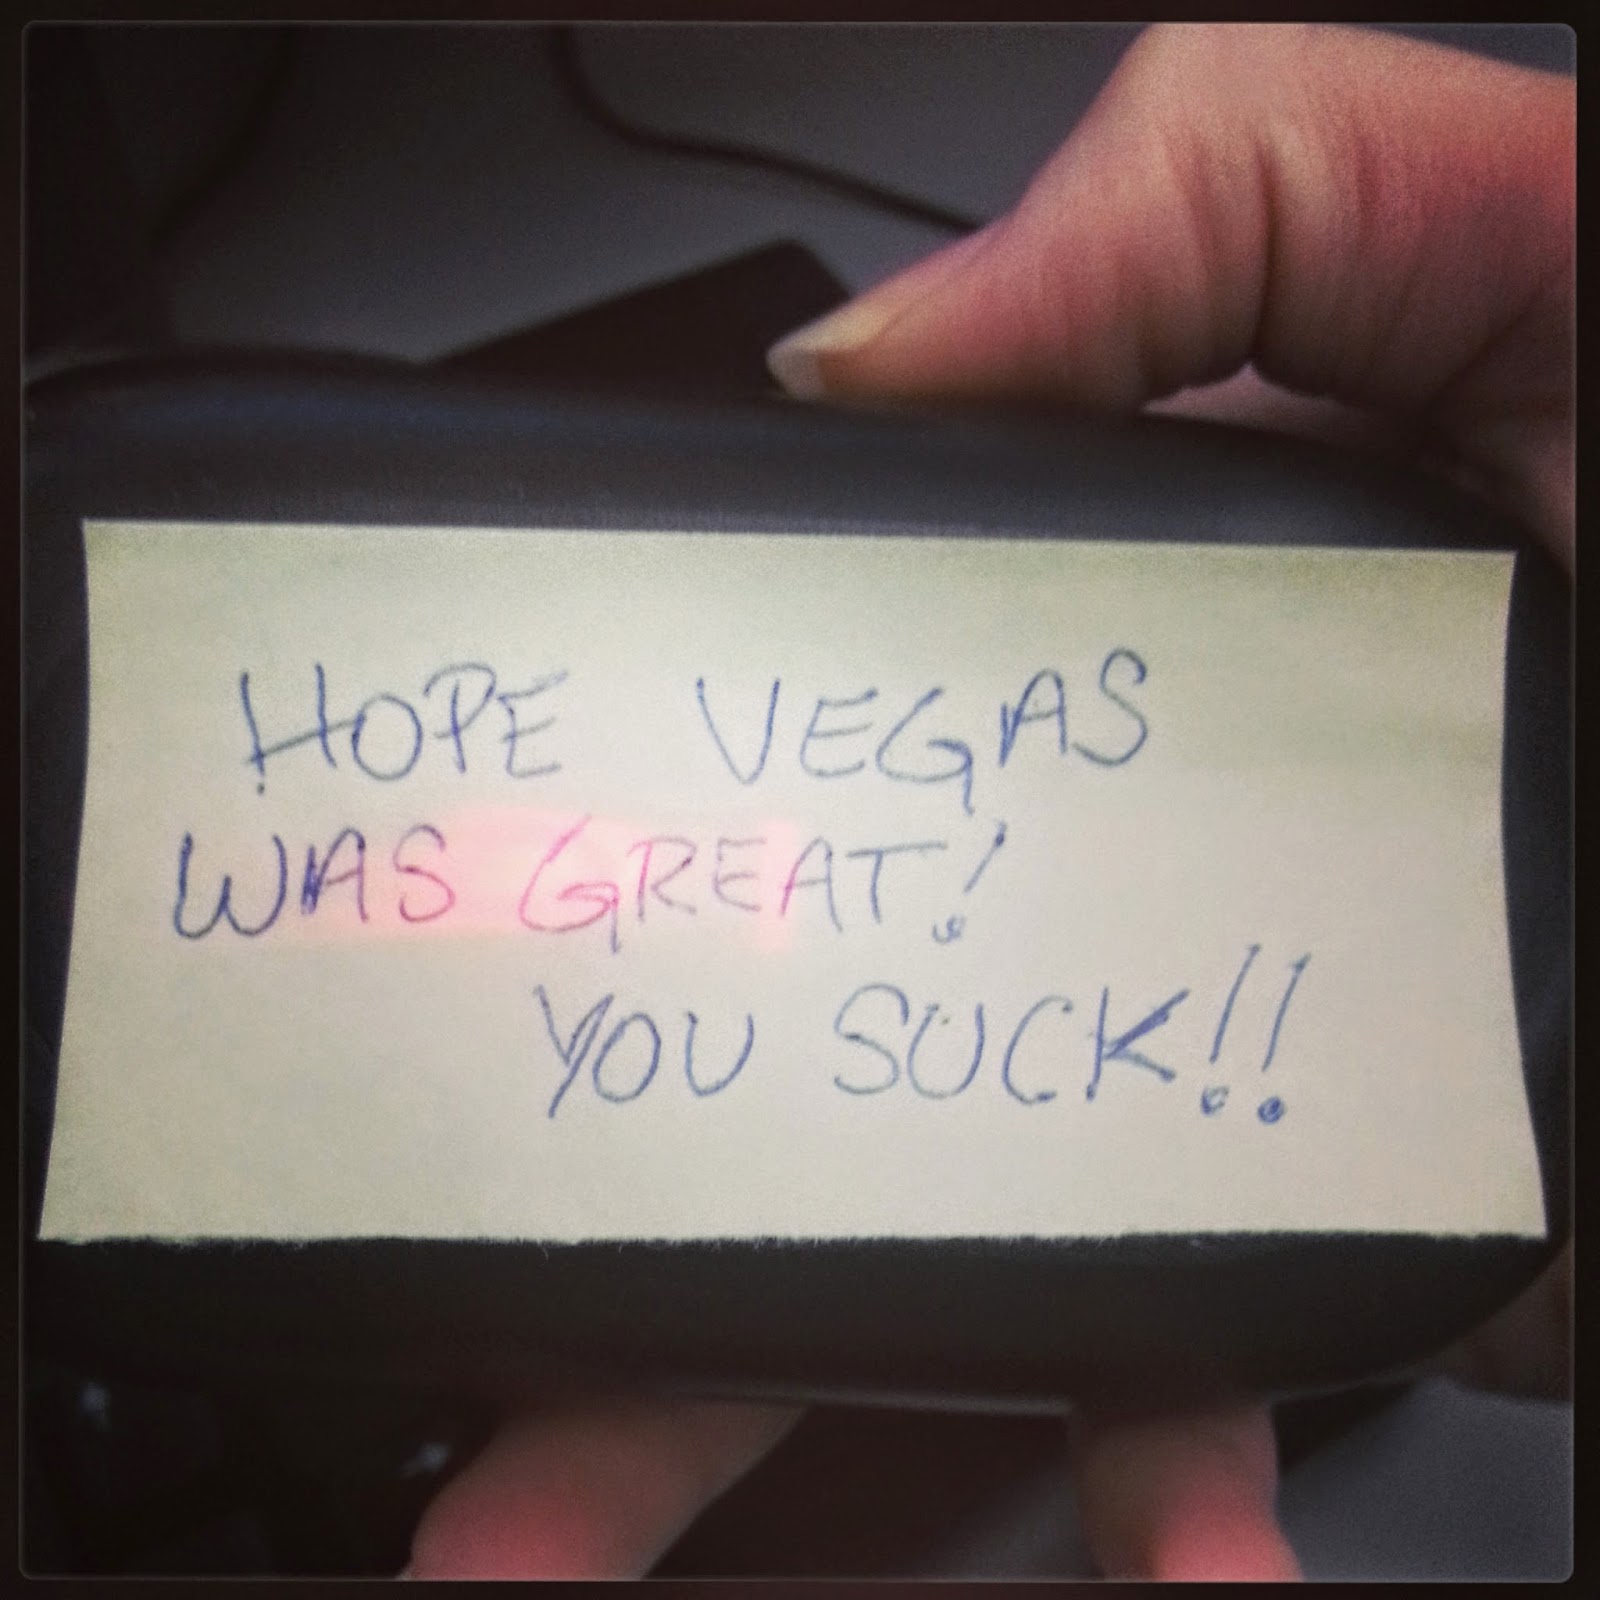 HOPE VEGAS
WAS GREAT!
YOU SUCK!!